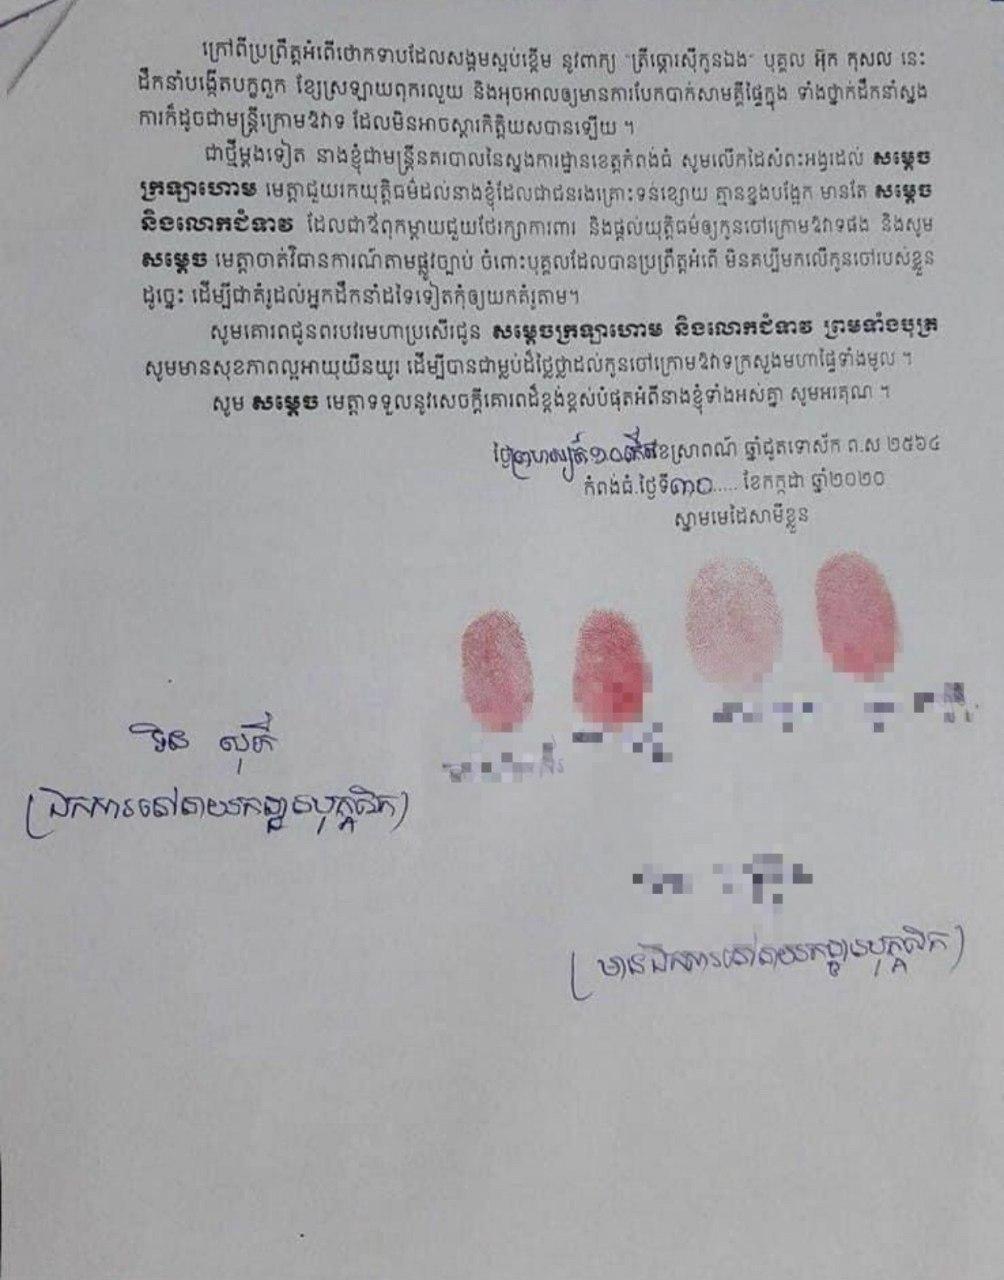 ក្រៅពីប្រព្រឹត្តអំពើថោកទាបដែលសង្គមស្អប់ខ្ពើម នូវពាក្យ "ត្រីឆ្តោរស៊ីកូនឯង" បុគ្គល អ៊ុក កុសល នេះ
ដឹកនាំបង្កើតបក្ខពួក ខ្សែស្រឡាយពុករលួយ និងអុចអាលឲ្យមានការបែកបាក់សាមគ្គីផ្ទៃក្នុង ទាំងថ្នាក់ដឹកនាំស្នង
ការក៏ដូចជាមន្ត្រីក្រោមឱវាទ ដែលមិនអាចស្តារកិត្តិយសបានឡើយ ។
ជាថ្មីម្តងទៀត នាងខ្ញុំជាមន្ត្រីនគរបាលនៃស្នងការដ្ឋានខេត្តកំពង់ធំ សូមលើកដៃសំពះអង្វរដល់ សម្តេច
ក្រឡាហោម មេត្តាជួយរកយុត្តិធម៌ដល់នាងខ្ញុំដែលជាជនរងគ្រោះទន់ខ្សោយ គ្មានខ្នងបង្អែក មានតែ សម្តេច
និងលោកជំទាវ ដែលជាឪពុកម្តាយជួយថែរក្សាការពារ និងផ្តល់យុត្តិធម៌ឲ្យកូនចៅក្រោមឱវាទផង និងសូម
សម្តេច មេត្តាចាត់វិធានការណ៍តាមផ្លូវច្បាប់ ចំពោះបុគ្គលដែលបានប្រព្រឹត្តអំពើ មិនគប្បីមកលើកូនចៅរបស់ខ្លួន
ដូច្នេះ ដើម្បីជាគំរូដល់អ្នកដឹកនាំដទៃទៀតកុំឲ្យយកគំរូតាម។
សូមគោរពជូនពរបវរមហាប្រសើរជូន សម្តេចក្រឡាហោម និងលោកជំទាវ ព្រមទាំងបុត្រ
សូមមានសុខភាពល្អអាយុយឺនយូរ ដើម្បីបានជាម្លប់ដ៏ថ្លៃថ្លាដល់កូនចៅក្រោមឱវាទក្រសួងមហាផ្ទៃទាំងមូល ។
សូម សម្តេច មេត្តាទទួលនូវសេចក្តីគោរពដ៏ខ្ពង់ខ្ពស់បំផុតអំពីនាងខ្ញុំទាំងអស់គ្នា សូមអរគុណ ។
ថ្ងៃព្រហស្បតិ៍ ១០កើត ខែស្រាពណ៍ ឆ្នាំជូតទោស័ក ព.ស ២៥៦៤
កំពង់ធំ.ថ្ងៃទី៣០..... ខែកក្កដា ឆ្នាំ២០២០
ស្នាមមេដៃសាមីខ្លួន
(ឯកការនៅនាយកដ្ឋានបុគ្គលិក)
(មានឯកការនៅនាយកដ្ឋានបុគ្គលិក)